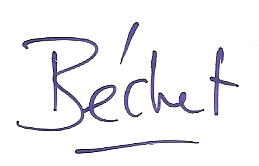 Béchet